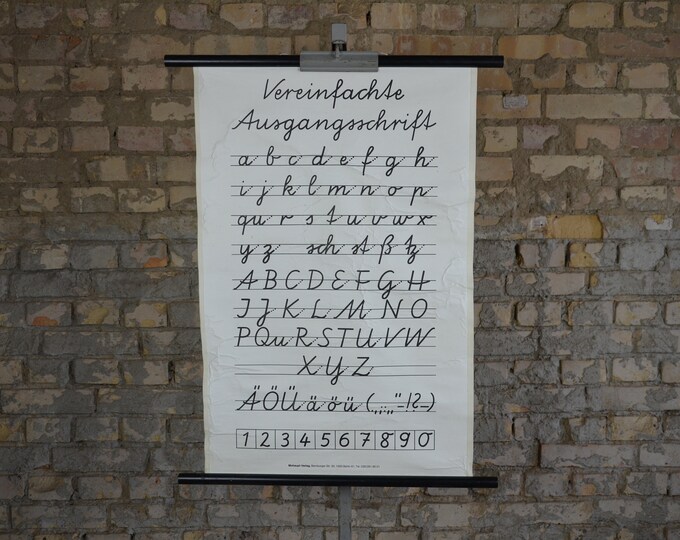 Vereinfachte
Ausgangsschrift
a b c d e f g h
i j k l m n o p
qu r s t u v w x
y z sch st ß tz
A B C D E F G H
I J K L M N O
P Qu R S T U V W
X Y Z
Ä Ö Ü ä ö ü
1 2 3 4 5 6 7 8 9 0